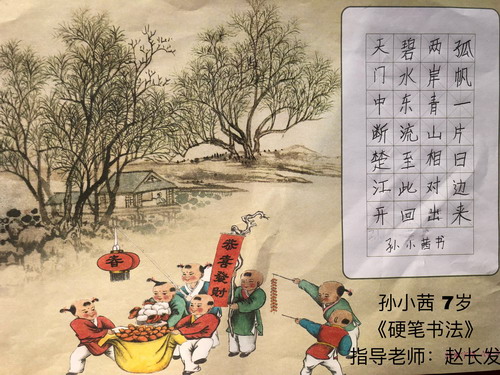 天门中断楚江开
碧水东流至此回
两岸青山相对出
孤帆一片日边来
孙小茜书
恭喜發財
春
孙小茜 7岁
《硬笔书法》
指导老师：赵长发